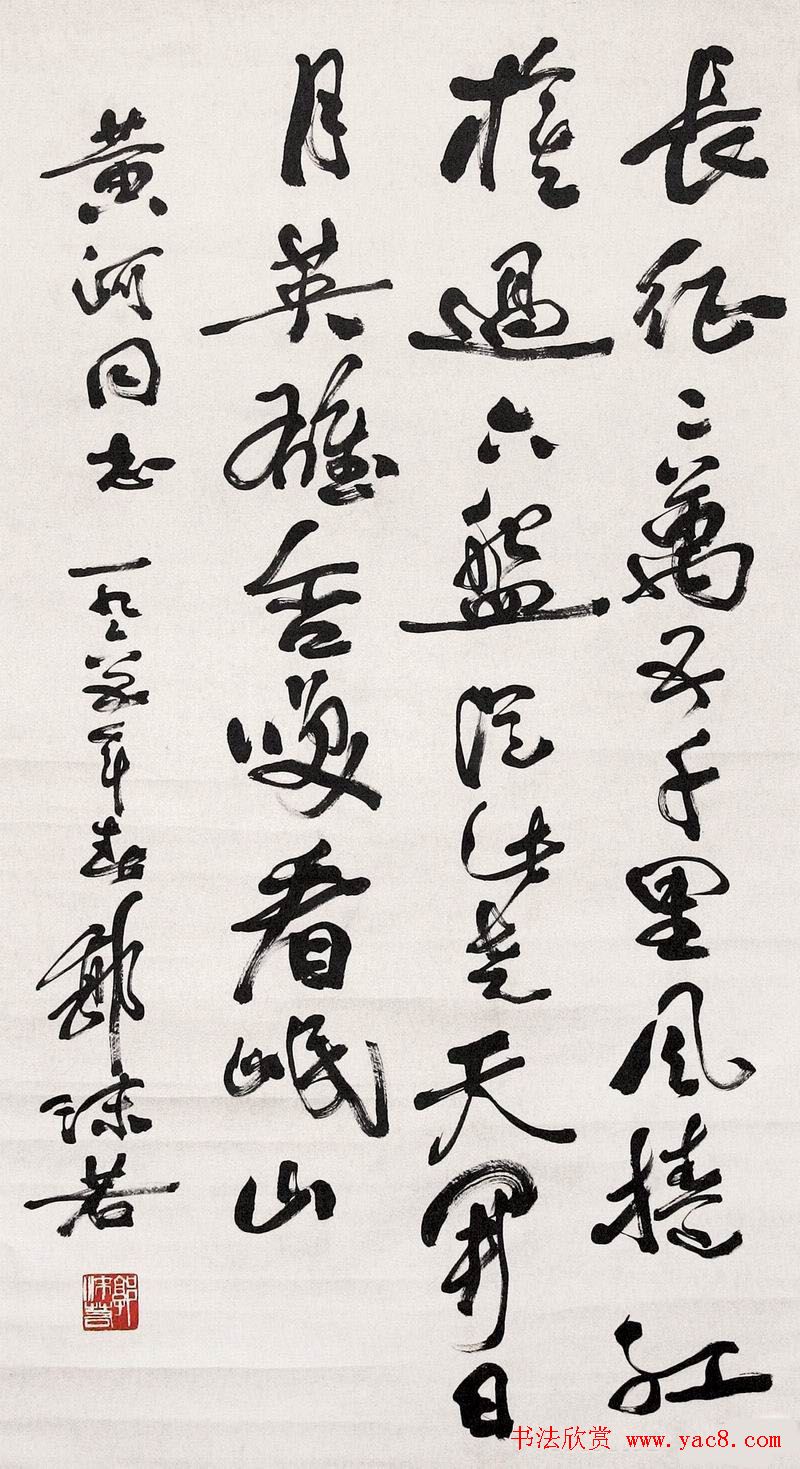 長征二萬五千里風捲紅
旗過六盤從此堯天開日
月英雄含咲看岷山
黃河同志 一九六年春 郭沫若
郭沫若
书法欣赏 www.yac8.com